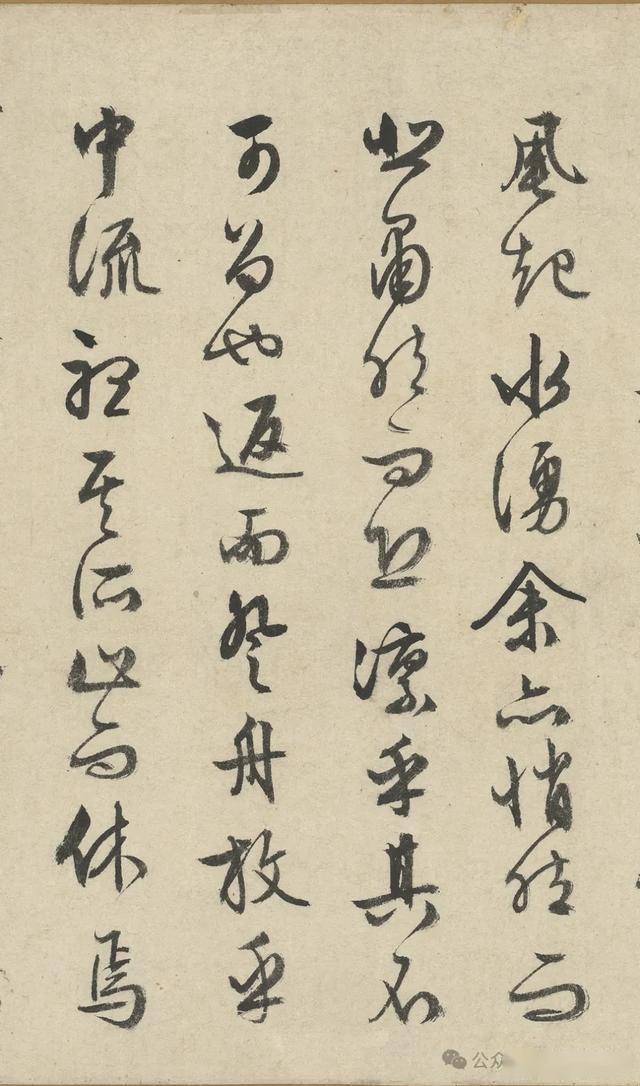 風起水湧余亦悄然而
悲肅然而恐凛乎其不
可留也返而登舟放乎
中流聽其所止而休焉
公众